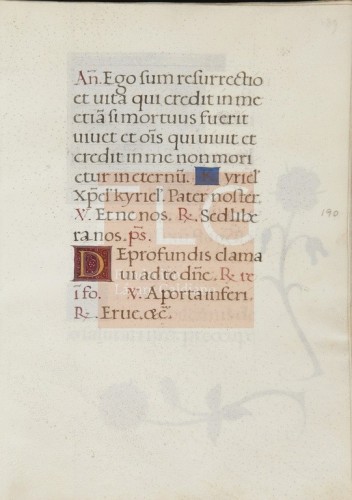 Añ. Ego sum resurrectio
et uita qui credit in me
etiã si mortuus fuerit
uiuet et oĩs qui uiuit et
credit in me non mori
etur in eternũ. Kyriel'
Xpel' kyriel'. Pater noster.
V. Et ne nos. R. Sed libe
ra nos. ps.
De profundis clama
ui ad te dñe. R. re
i fo. V. A porta inferi.
R. Erue. &c.
190
FLG